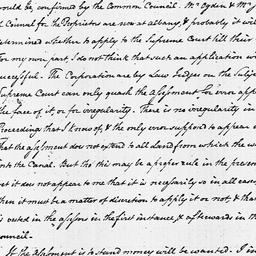 would be, confirmed by the Common Council. Mr Ogden & Mr
Council for the Proprietors are now at albany, & probably it will
determined whether to apply to the Supreme Court till their
For my own part, I do not think that such an application wi
successful. The Corporation are by Law Judges on the Subje
Supreme Court can only quash the assessment for error appe
the face of it, or for irregularity. There is no irregularity in
Proceeding that I know of, & the only error suppos'd to appear i
that the assessment does not extend to all Land from which the wa
into the Canal. But tho' this may be a proper rule in the presen
yet it does not appear to me that it is necessarily so in all cases
then it must be a matter of discretion to apply it or not, & that
is vested in the assessors in the first instance, & afterwards in the
Council.
If the Assessment is to stand money will be wanted. I in